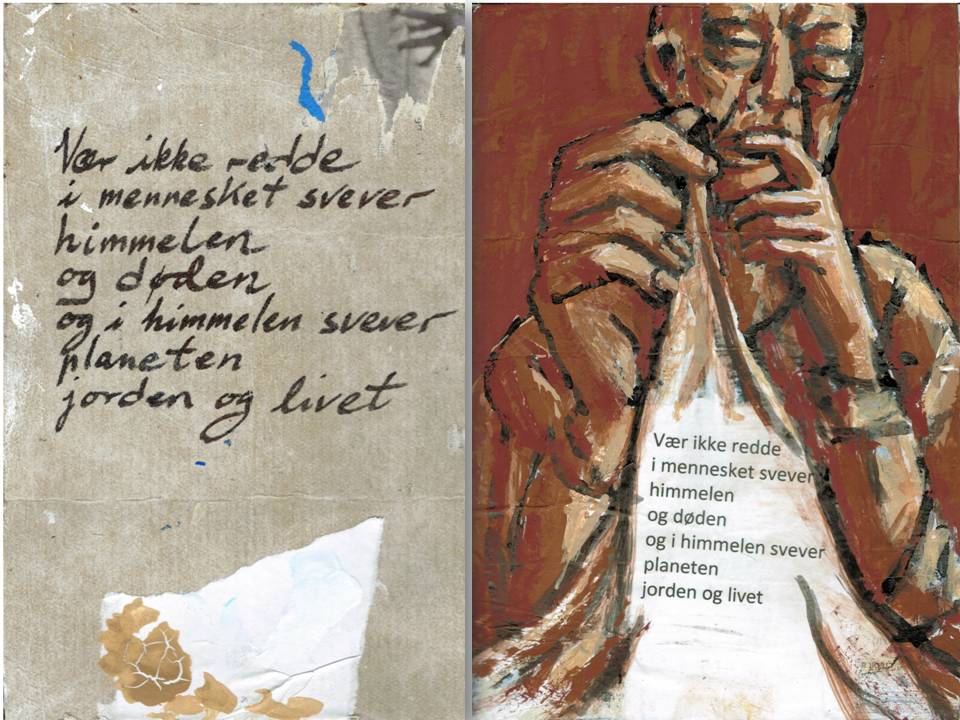 Vær ikke redde
i mennesket svever
himmelen
og døden
og i himmelen svever
planeten
jorden og livet
Vær ikke redde
i mennesket svever
himmelen
og døden
og i himmelen svever
planeten
jorden og livet